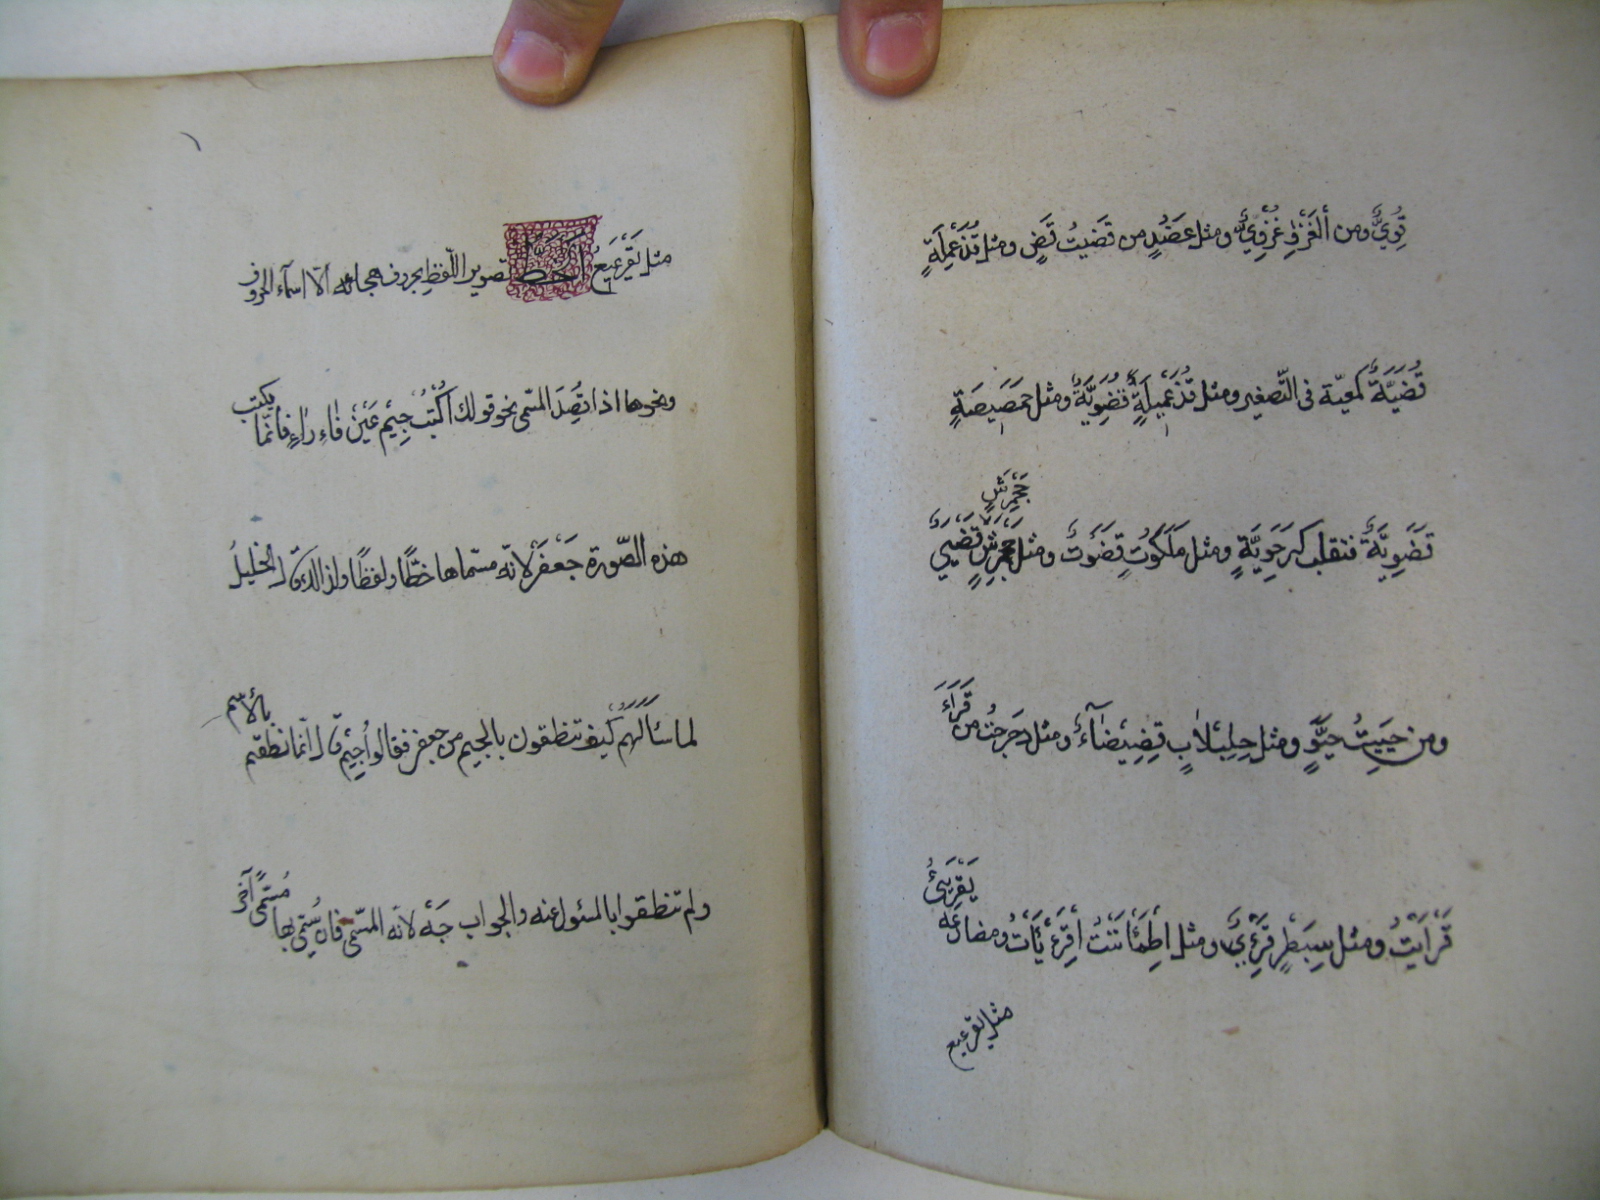 قُوِيٌّ ومن الغَزْوِ غُزْوِيٌّ ومثل عَضُدٍ من قَضَيتُ قَضٍ ومثل قُذَعْمِلَةٍ
قُضَيَّةٌ كمُعَيّة فى التّصغير ومثل قُذَعْمِيلَةٍ قُضَوِيَّةٌ ومثل حَمَصِيصَةٍ
قَضَوِيَّةٌ فتقلب كرَحَوِيَّةٍ ومثل مَلَكُوتٍ قَضَوُتٌ ومثل جَحْمَرِشٍ قَضْيَىٍ
جَحْمَرِشٍ
ومن حَيِيتُ حَيَّوٍ ومثل حِلِبْلَابٍ قِضِيضَاءٌ ومثل دَحْرَجْتُ من قَرَأَ
قَرْأَيْتُ ومثل سِبَطْرٍ قِرَأْىٌ ومثل اِطْمَأْنَنْتُ اِقْرَءْيَأْتُ ومضارعه يَقْرَئِىُّ
مثل يقرعيع
مثل يَقْرَعِيعُ الخَطُّ تصوير اللّفظِ بحروف هجائه الّا اسماء الحروف
ونحوها اذا قُصِدَ المسمّى نحو قولك اكْتُبْ جِيْم عَيْنْ فاء راء فانّما يكتب
هذه الصّورة جَعْفَر لانّه مسمّاها خطًّا ولفظًا ولذالك قال الخليلُ
لما سَأَلَهُمْ كَيْفَ تنطقون بالجيم من جعفر فقالوا جِيْمٌ قال انّما نطقتم بالاسم
ولم تنطقوا بالمسئول عنه والجواب جَهْ لانّه المسمّى فان سُمّى بها مُسَمًّى آخر